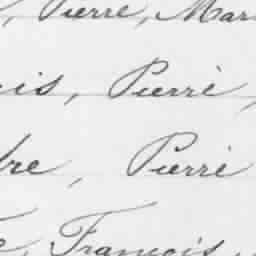 , Pierre, Mar
is, Pierre,
re, Pierre
e, François,